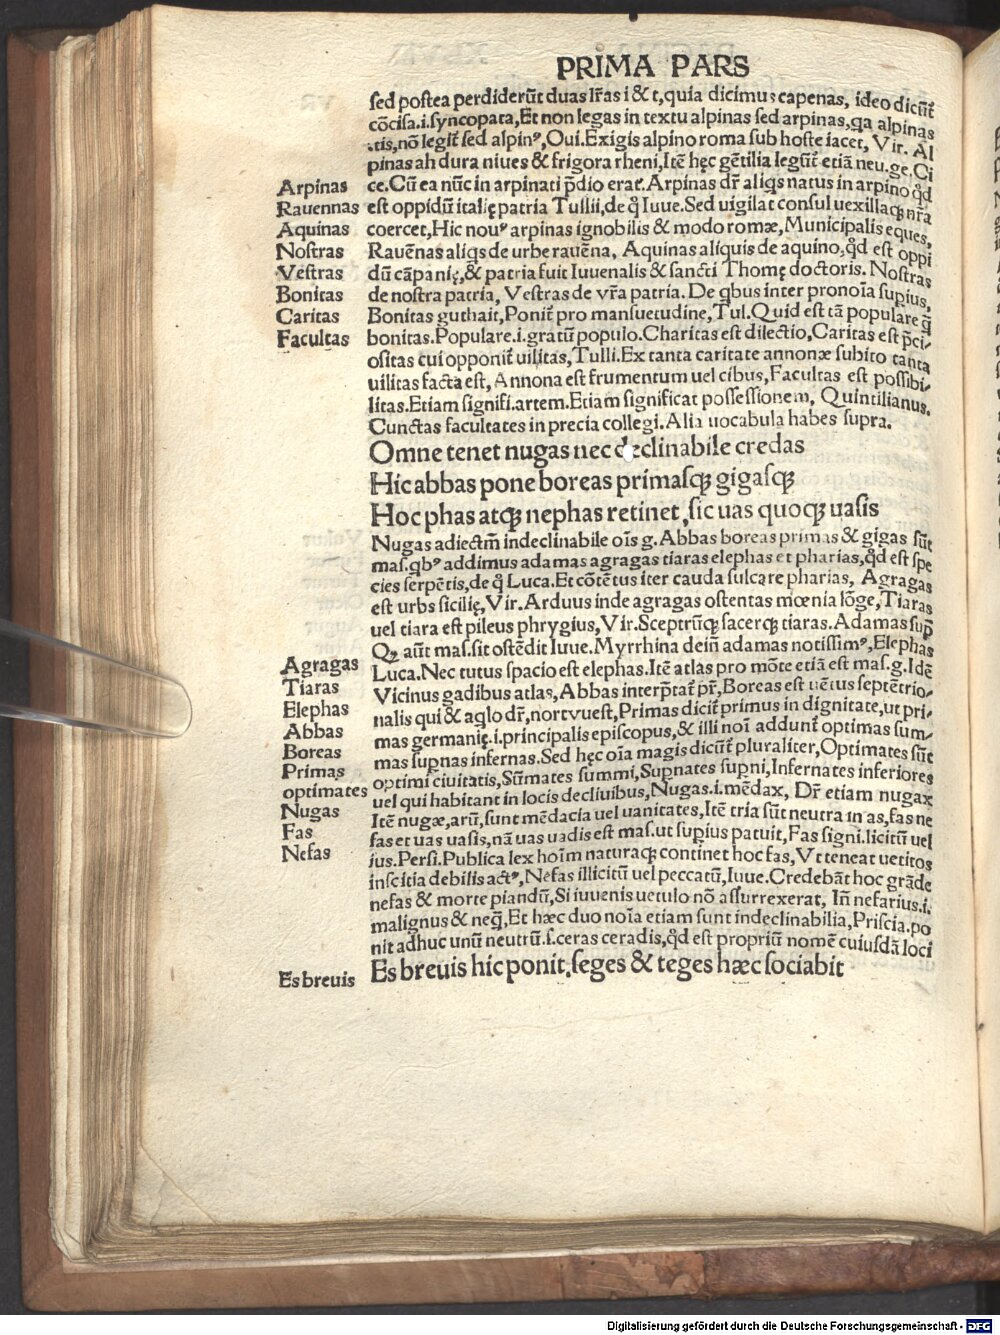 PRIMA PARS
sed postea perdiderūt duas lr̄as i & t, quia dicimus capenas, ideo dicūt̄
cōcisa.i.syncopata, Et non legas in textu alpinas sed arpinas, qa alpinas
.tis, nō legit̄ sed alpinꝰ, Oui. Exigis alpino roma sub hoste iacet, Vir. Al
pinas ah dura niues & frigora rheni, Itē hęc gētilia legūt̄ etiā neu. ge. Ci
Arpinas ce. Cū ea nūc in arpinati p̄dio erat̄. Arpinas dr̄ aliqs natus in arpino qd̄
Rauennas est oppidū italię patria Tullii, de q̄ Iuue. Sed uigilat consul uexillaqꝫ nr̄a
Aquinas coercet, Hic nouꝰ arpinas ignobilis & modo romæ, Municipalis eques,
Nostras Rauēnas aliqs de urbe rauēna, Aquinas aliquis de aquino, qd̄ est oppi
Vestras dū cāpanię, & patria fuit Iuuenalis & sancti Thomę doctoris. Nostras
Bonitas de nostra patria, Vestras de vr̄a patria. De qbus inter pronoīa supius,
Caritas Bonitas guthait, Ponit̄ pro mansuetudine, Tul. Quid est tā populare q̄
Facultas bonitas. Populare.i.gratū populo. Charitas est dilectio, Caritas est p̄ci
ositas cui opponit̄ uilitas, Tulli. Ex tanta caritate annonæ subito tanta
uilitas facta est, Annona est frumentum uel cibus, Facultas est possibi
litas. Etiam signifi. artem. Etiam significat possessionem, Quintilianus.
Cunctas facultates in precia collegi. Alia uocabula habes supra.
Omne tenet nugas nec declinabile credas
Hic abbas pone boreas primasqꝫ gigasqꝫ
Hoc phas atqꝫ nephas retinet, sic uas quoqꝫ uasis
Nugas adiectm̄ indeclinabile oīs g. Abbas boreas primas & gigas sūt
mas. qbꝰ addimus adamas agragas tiaras elephas et pharias, qd̄ est spe
cies serpētis, de q̄ Luca. Et cōtētus iter cauda sulcare pharias, Agragas
est urbs sicilię, Vir. Arduus inde agragas ostentas mœnia lōge, Tiaras
uel tiara est pileus phrygius, Vir. Sceptrūqꝫ sacerqꝫ tiaras. Adamas sup̄
Qꝫ aūt mas. sit ostēdit Iuue. Myrrhina dein̄ adamas notissimꝰ, Elephas
Agragas Luca. Nec tutus spacio est elephas. Itē atlas pro mōte etiā est mas. g. Idē
Tiaras Vicinus gadibus atlas, Abbas interp̄tat̄ pr̄, Boreas est uētus septētrio
Elephas nalis qui & aqlo dr̄, nortvuest, Primas dicit̄ primus in dignitate, ut pri
Abbas mas germanię.i.principalis episcopus, & illi noī addunt̄ optimas sum
Boreas mas supnas infernas. Sed hęc oīa magis dicūt̄ pluraliter, Optimates sūt
Primas optimi ciuitatis, Sūmates summi, Supnates supni, Infernates inferiores
optimates uel qui habitant in locis decliuibus, Nugas.i.mēdax, Dr̄ etiam nugax
Nugas Itē nugæ, arū, sunt mēdacia uel uanitates, Itē tria sūt neutra in as, fas ne
Fas fas et uas uasis, nā uas uadis est mas. ut supius patuit, Fas signi. licitū uel
Nefas ius. Persi. Publica lex hoīm naturaqꝫ continet hoc fas, Vt teneat uetitos
inscitia debilis actꝰ, Nefas illicitū uel peccatū, Iuue. Credebāt hoc grāde
nefas & morte piandū, Si iuuenis uetulo nō assurrexerat, In̄ nefarius.i.
malignus & neq̄, Et hæc duo noīa etiam sunt indeclinabilia, Priscia. po
nit adhuc unū neutrū.s.ceras ceradis, qd̄ est propriū nomē cuiusdā loci
Es breuis Es breuis hic ponit, seges & teges hæc sociabit
Digitalisierung gefördert durch die Deutsche Forschungsgemeinschaft - DFG